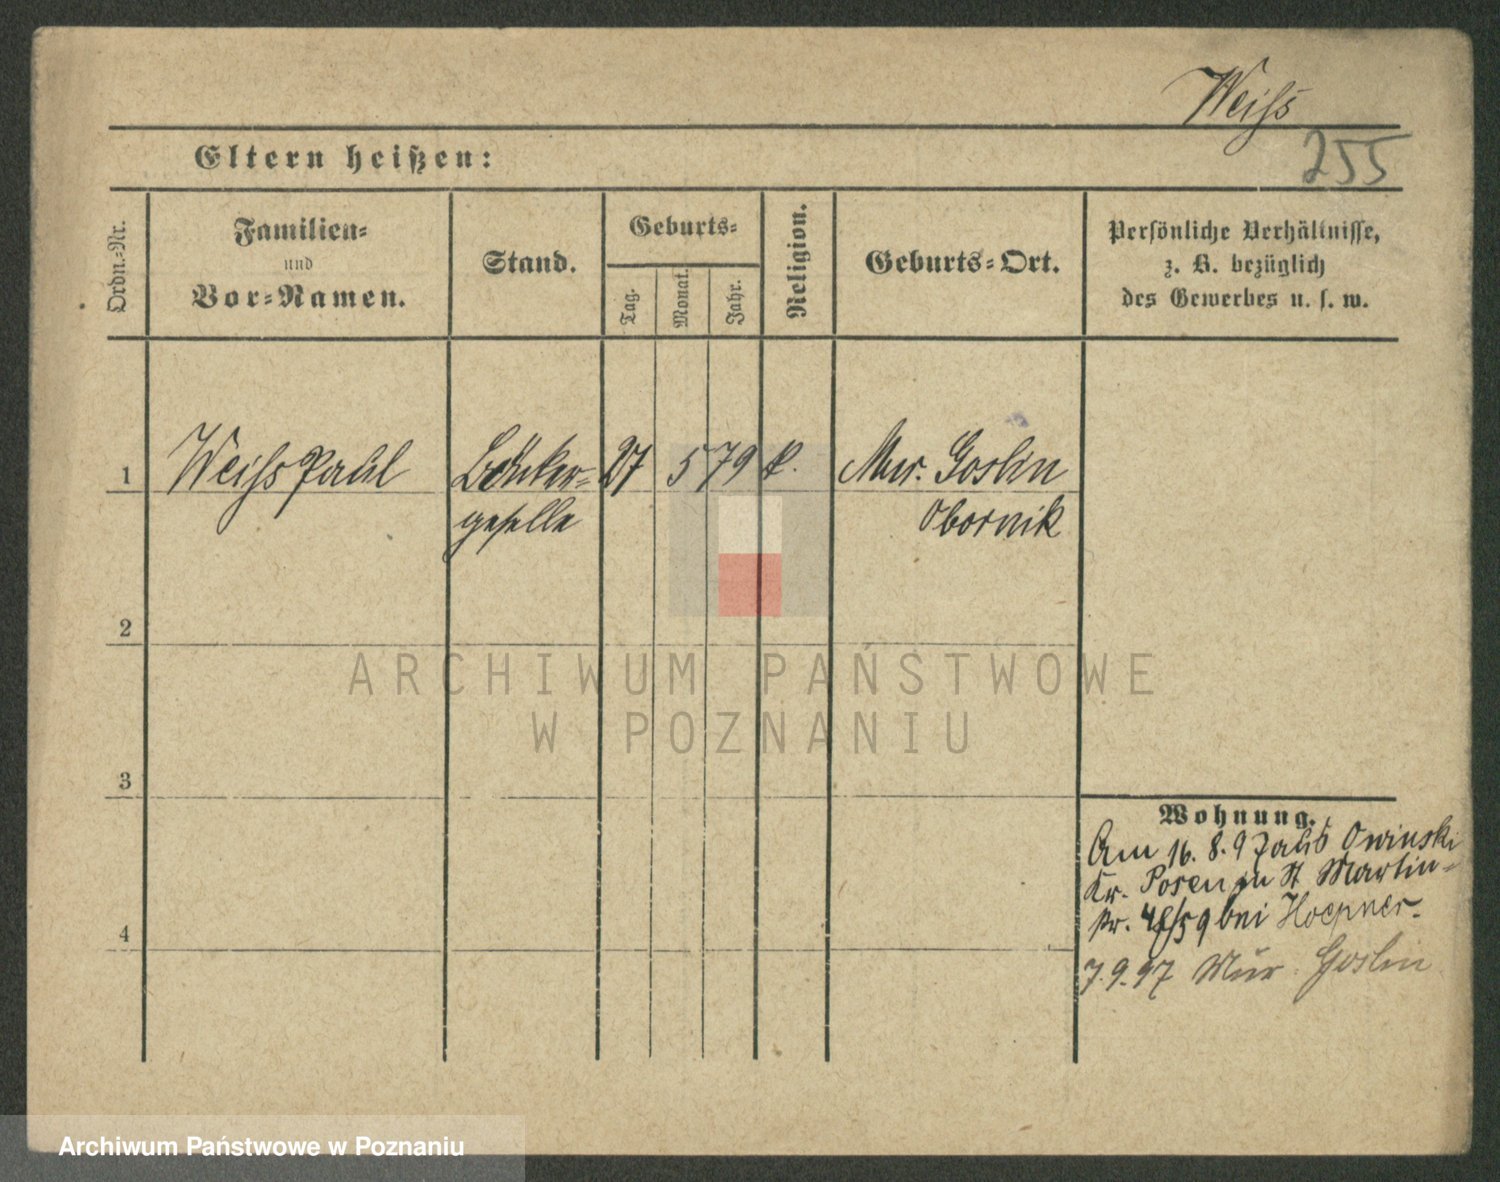 Weiſs
255
Eltern heißen:
Ordn.-Nr.
Familien-
und
Vor-Namen.
Stand.
Geburts-
Tag.
Monat.
Jahr.
Religion.
Geburts-Ort.
Persönliche Verhältnisse,
z. B. bezüglich
des Gewerbes u. s. w.
1 Weiſs Paul 27 5 79 k. Mur. Goslin
geselle Obornik
2
3
4
ARCHIWUM PAŃSTWOWE
W POZNANIU
Wohnung.
Am 16. 8. 97 aus Owinski
Kr. Posen zu St Martin-
str. bei Hoepner.
7.9.97 Mur. Goslin
Archiwum Państwowe w Poznaniu